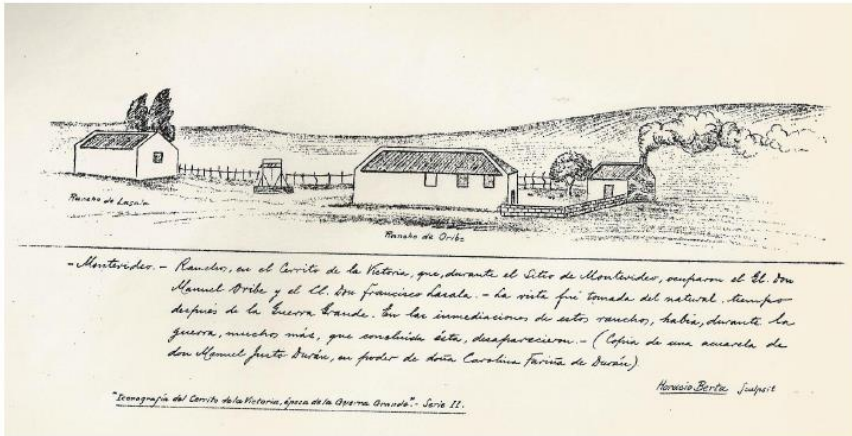 Rancho de Lasala
Rancho de Oribe
- Montevideo. - Ranchos, en el Cerrito de la Victoria, que, durante el Sitio de Montevideo, ocuparon el Gl. Don
Manuel Oribe y el Cl. Don Francisco Lasala. - La vista fué tomada del natural, tiempo
después de la Guerra Grande. En las inmediaciones de estos ranchos, había, durante la
guerra, muchos más, que concluida ésta, desaparecieron. - (Copia de una acuarela de
don Manuel Justo Durán, en poder de doña Carolina Fariña de Durán)
Horacio Berta Sculpsit
"Iconografía del Cerrito de la Victoria, época de la Guerra Grande". - Serie II.